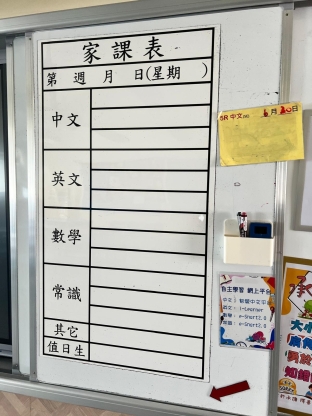 家課表
第 週 月 日(星期 )
中文
英文
數學
常識
其它
值日生
5R 中文
月 日
自主學習 網上平台